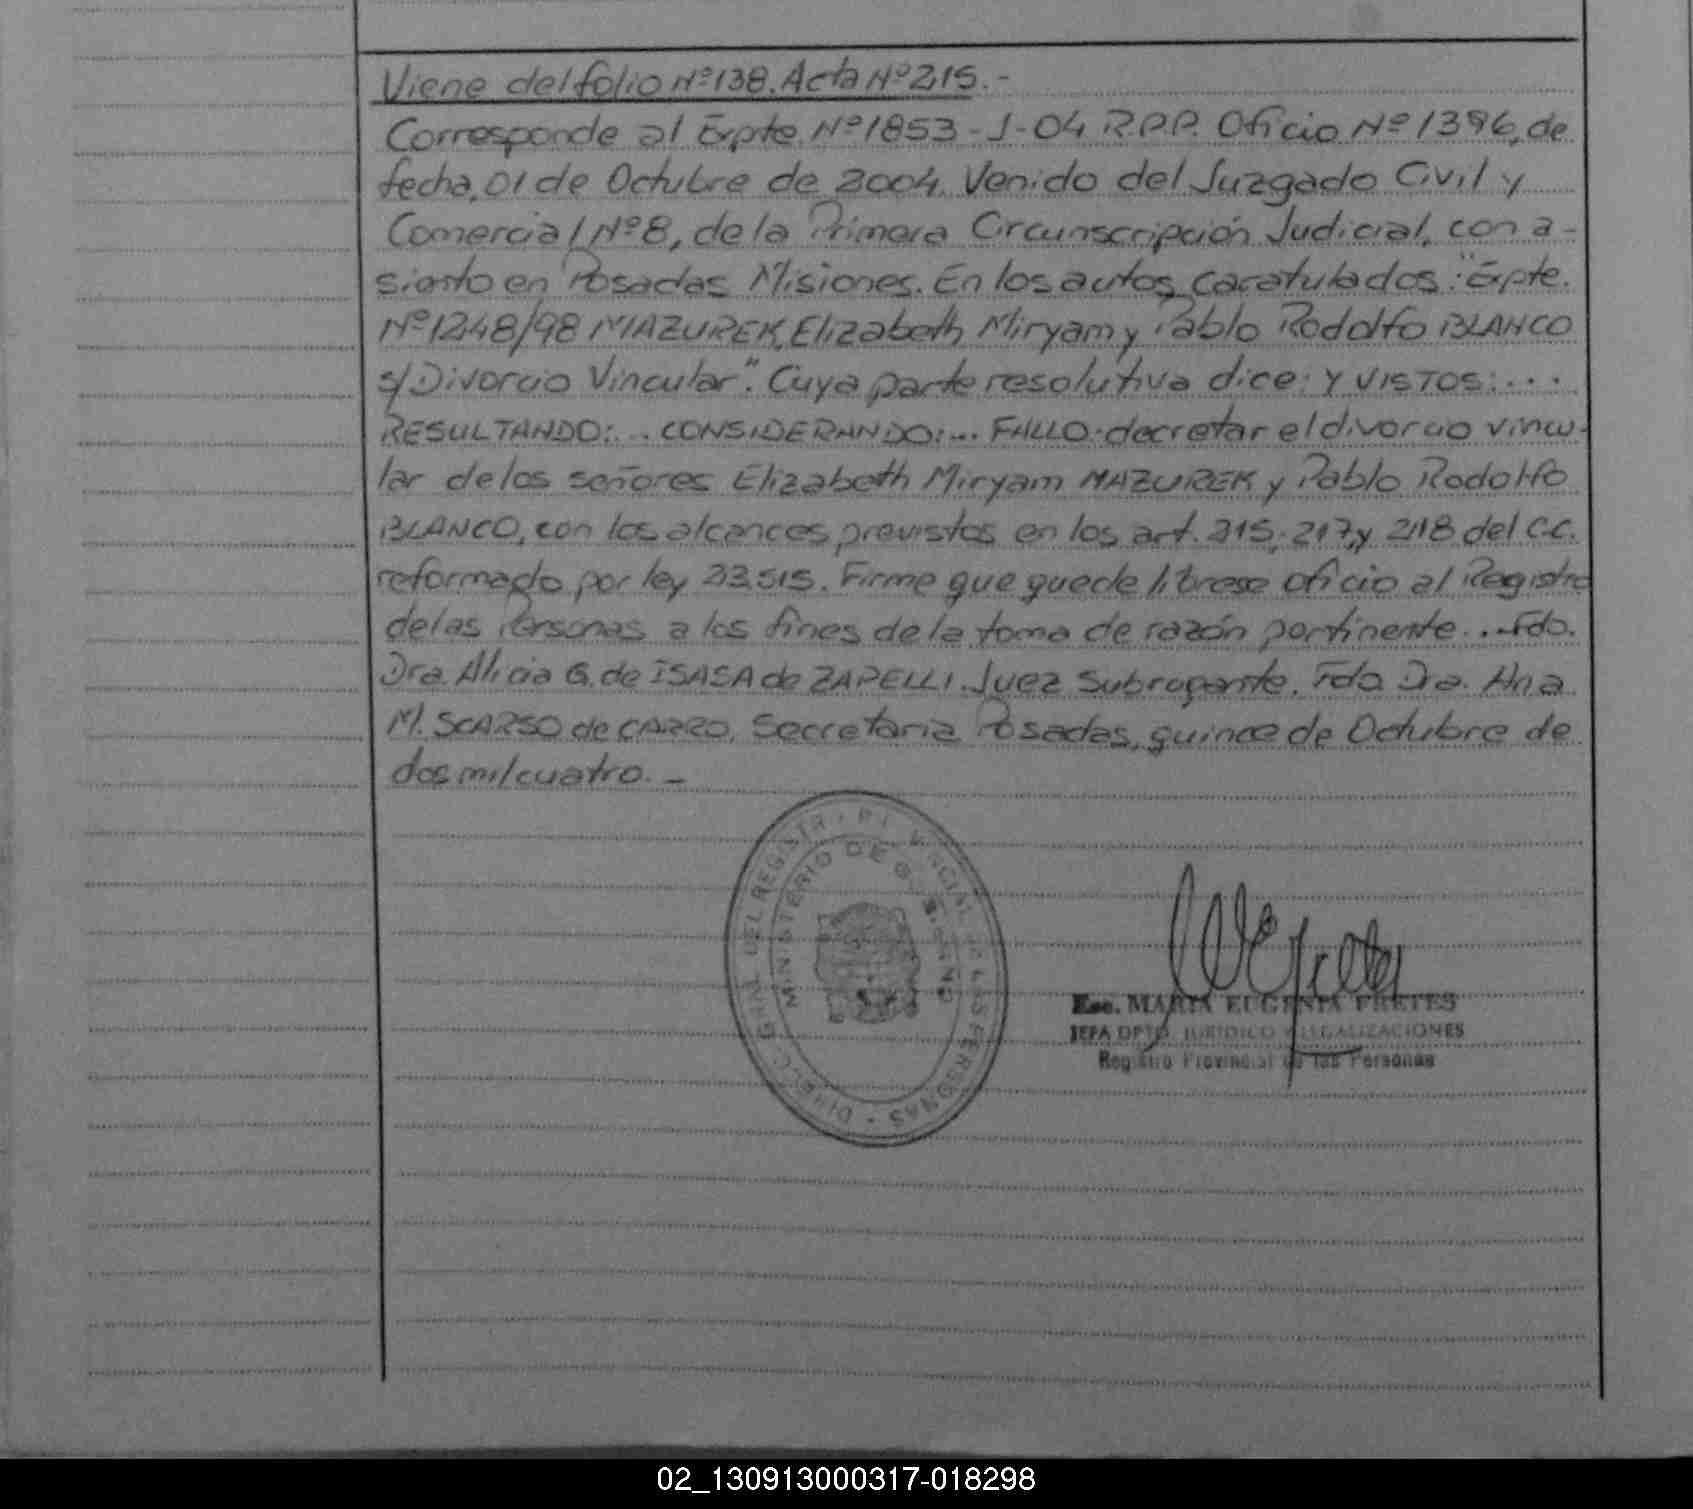 Viene del folio Nº138. Acta Nº215.-
Corresponde al Expte. Nº1853-J-04 R.P.P. Oficio Nº1396, de
fecha, 01 de Octubre de 2004. Venido del Juzgado Civil y
Comercial Nº8, de la Primera Circunscripción Judicial, con a-
siento en Posadas Misiones. En los autos caratulados: "Expte.
Nº1248/98 MAZUREK, Elizabeth Miryam y Pablo Rodolfo BLANCO
s/Divorcio Vincular". Cuya parte resolutiva dice: Y VISTOS:...
RESULTANDO:... CONSIDERANDO:... FALLO: decretar el divorcio vincu-
lar de los señores Elizabeth Miryam MAZUREK y Pablo Rodolfo
BLANCO, con los alcances previstos en los art. 215, 217, y 218 del C.C.
reformado por ley 23.515. Firme que quede librese oficio al Registro
de las Personas a los fines de la toma de razón pertinente... Fdo.
Dra. Alicia G. de ISASA de ZAPELLI. Juez Subrogante. Fdo. Dra. Ana
M. SCARSO de CARRO. Secretaria Posadas, quince de Octubre de
dos mil cuatro.-
DIRECC. GRAL. DEL REGISTRO PROVINCIAL DE LAS PERSONAS
MINISTERIO DE GOBIERNO
Esc. MARIA EUGENIA FRETES
JEFA DPTO. JURIDICO Y LEGALIZACIONES
Registro Provincial de las Personas
02_130913000317-018298